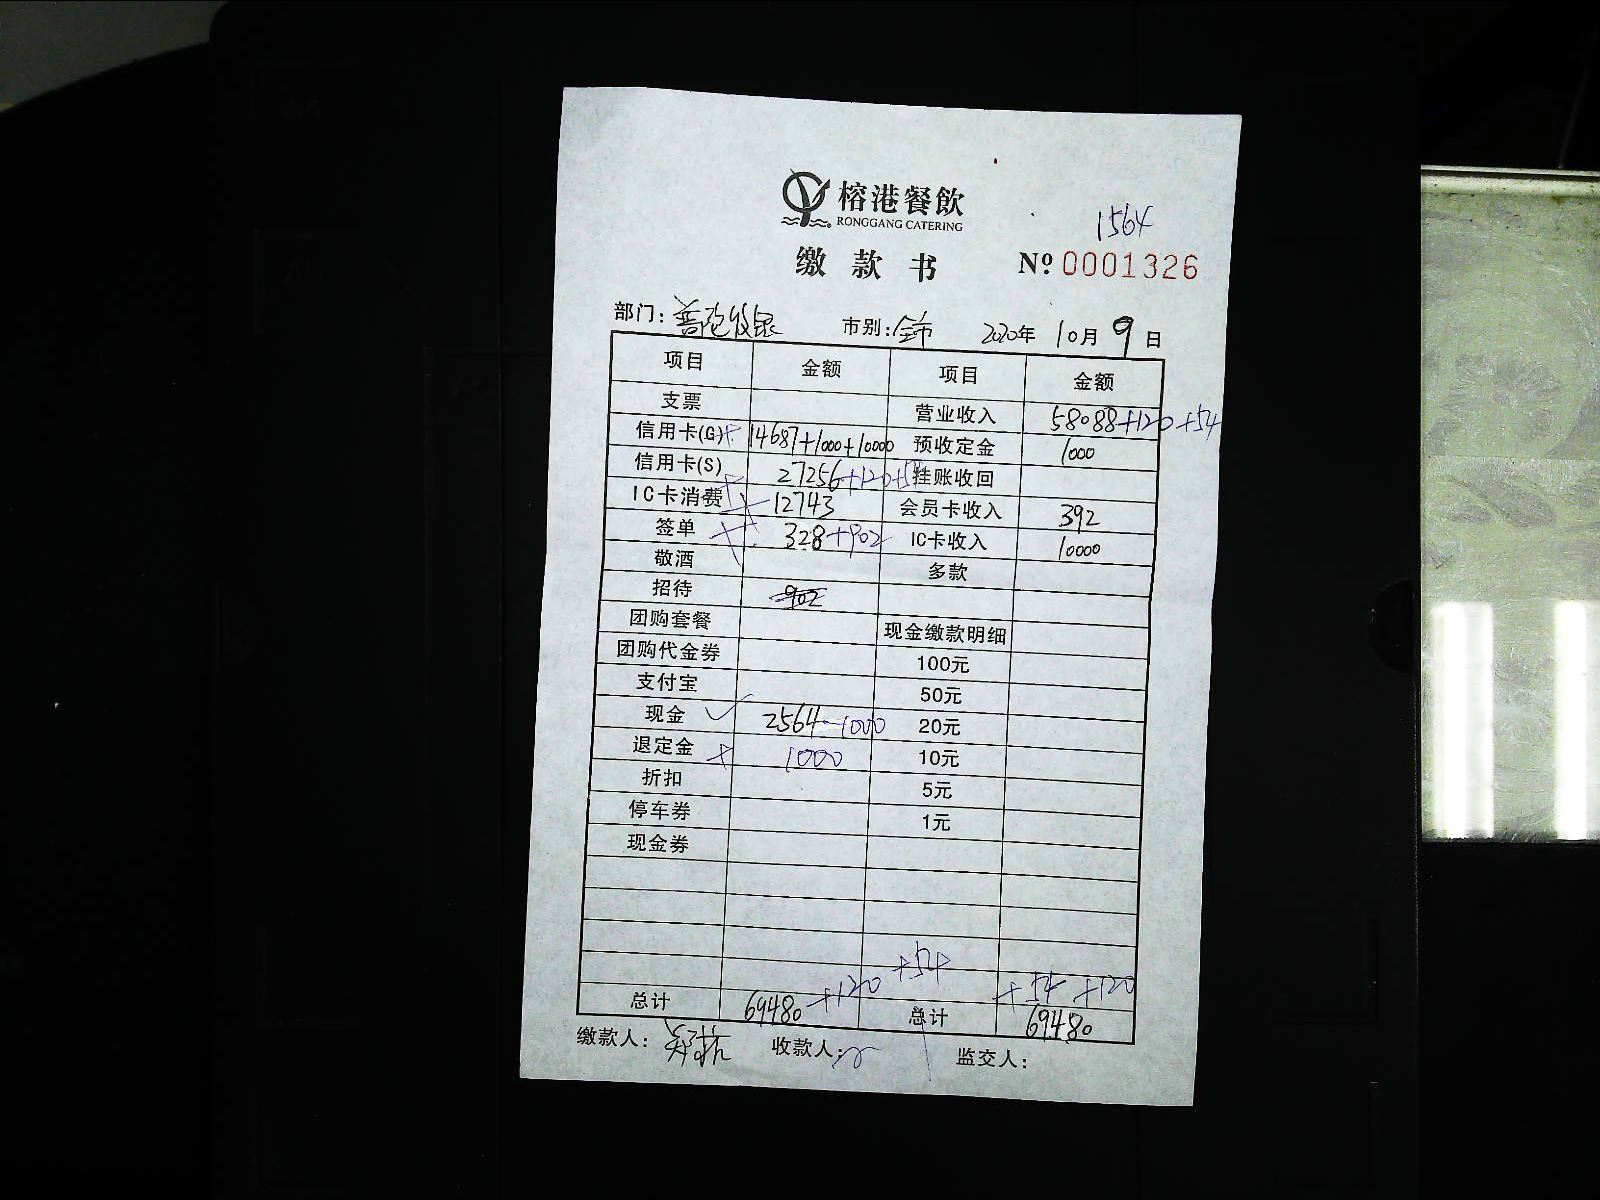 榕港餐飲
RONGGANG CATERING
1564
缴款书 Nº 0001326
部门: 市别: 全市 2020年 10月 9日
项目 金额 项目 金额
支票 营业收入 58088+120+54
信用卡(G) 14687+1000+10000 预收定金 1000
信用卡(S) 27256+120+54 挂账收回
IC卡消费 12743 会员卡收入 392
签单 328+902 IC卡收入 10000
敬酒 多款
招待 902
团购套餐 现金缴款明细
团购代金券 100元
支付宝 50元
现金 2564-1000 20元
退定金 1000 10元
折扣 5元
停车券 1元
现金券
总计 69480 +120 +54 总计 69480 +54 +120
缴款人: 收款人: 监交人: